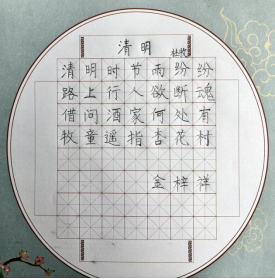 清明
杜牧
清明时节雨纷纷
路上行人欲断魂
借问酒家何处有
牧童遥指杏花村
金梓祥